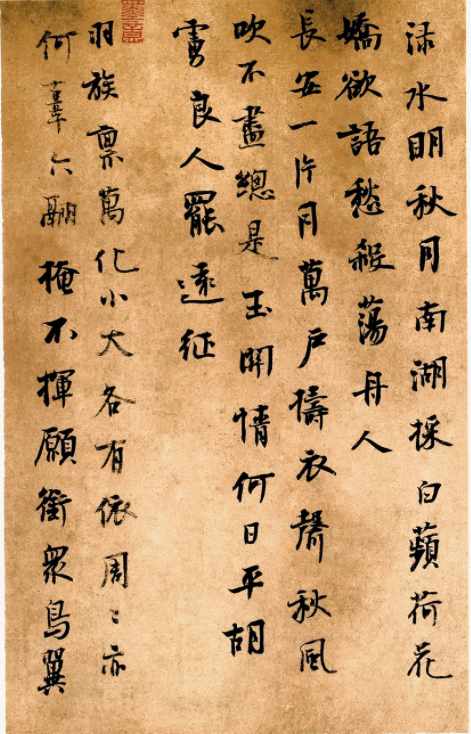 渌水明秋月南湖採白蘋荷花
嬌欲語愁殺蕩舟人
長安一片月萬戶擣衣聲秋風
吹不盡總是玉關情何日平胡
虜良人罷遠征
羽族稟萬化小大各有依周〻亦
何辜六翮掩不揮願銜眾鳥翼